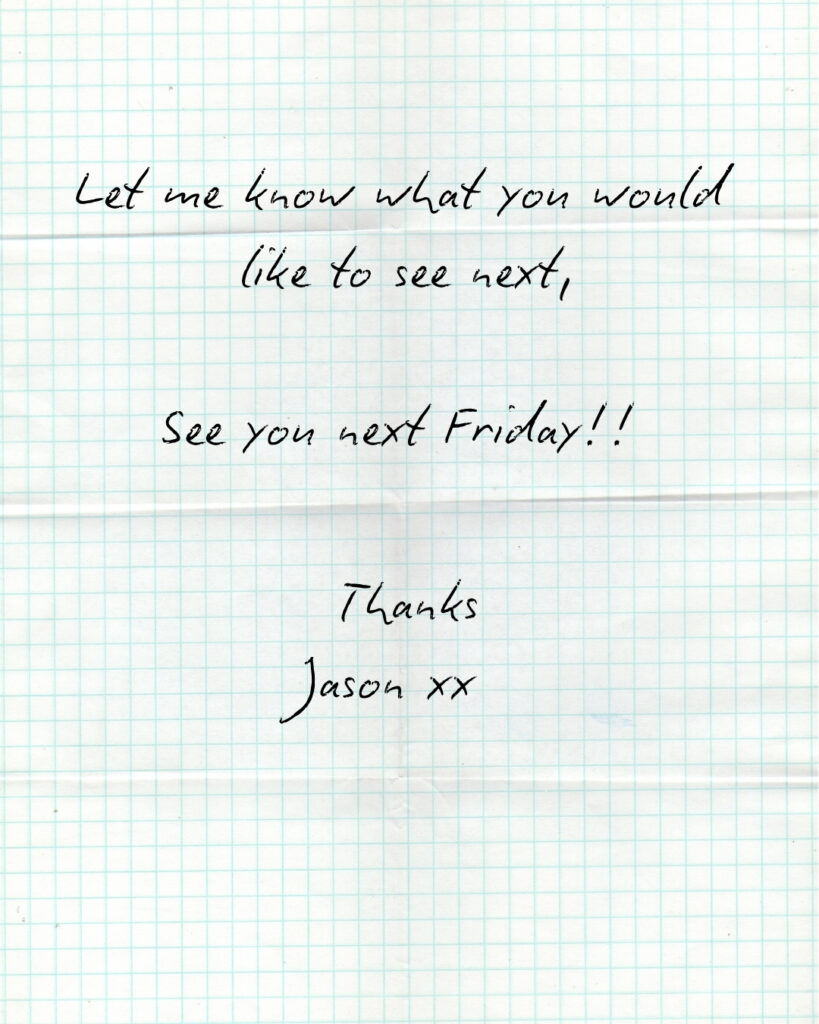 Let me know what you would
like to see next,
See you next Friday!!
Thanks
Jason xx